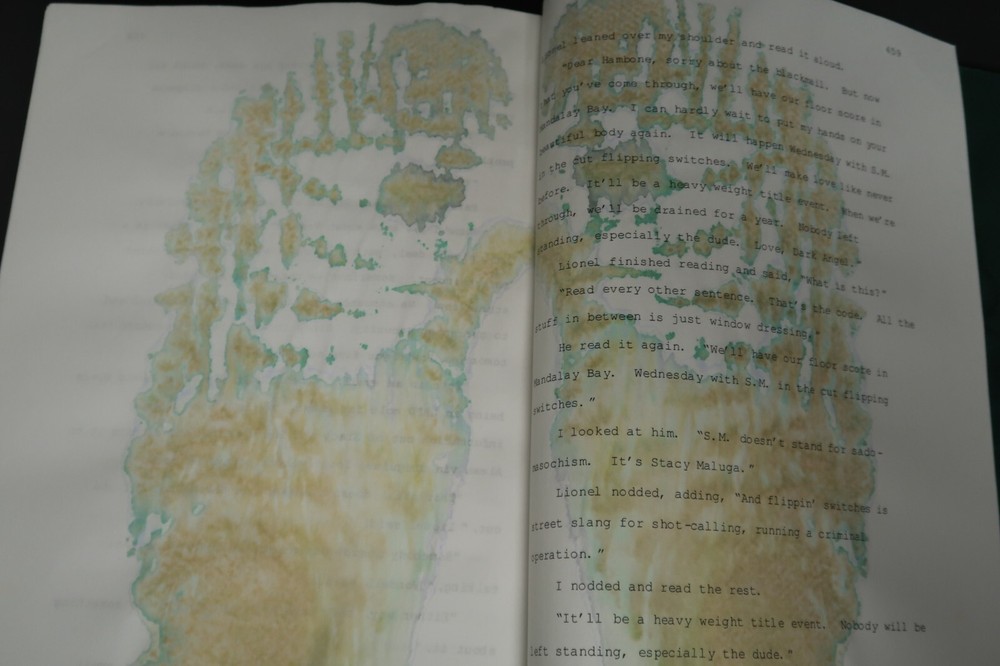 459
Lionel leaned over my shoulder and read it aloud.
"Dear Hambone, sorry about the blackmail. But now
that you've come through, we'll have our floor score in
Mandalay Bay. I can hardly wait to put my hands on your
beautiful body again. It will happen Wednesday with S.M.
in the cut flipping switches. We'll make love like never
before. It'll be a heavy weight title event. When we're
through, we'll be drained for a year. Nobody left
standing, especially the dude. Love, Dark Angel."
Lionel finished reading and said, "What is this?"
"Read every other sentence. That's the code. All the
stuff in between is just window dressing."
He read it again. "We'll have our floor score in
Mandalay Bay. Wednesday with S.M. in the cut flipping
switches."
I looked at him. "S.M. doesn't stand for sado-
masochism. It's Stacy Maluga."
Lionel nodded, adding, "And flippin' switches is
street slang for shot-calling, running a criminal
operation."
I nodded and read the rest.
"It'll be a heavy weight title event. Nobody will be
left standing, especially the dude."